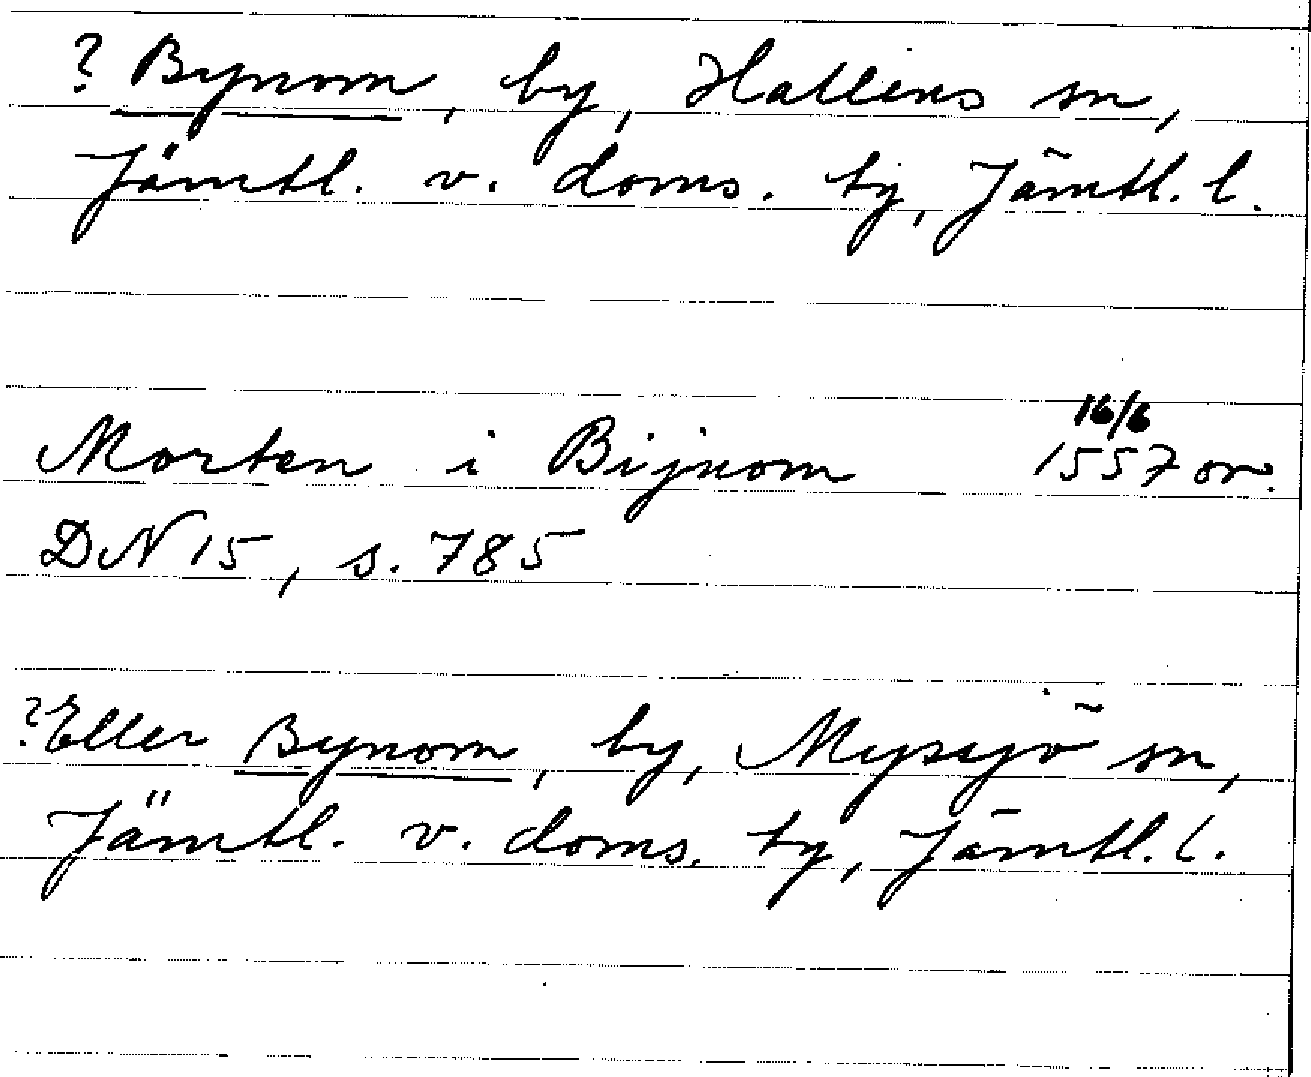 ? Bynom, by, Hallens sn,
Jämtl. v. doms. tg, Jämtl. l.
16/6
Morten i Bijnom 1557 or.
DN 15, s. 785
? Eller Bynom, by, Myssjö sn,
Jämtl. v. doms. tg, Jämtl. l.